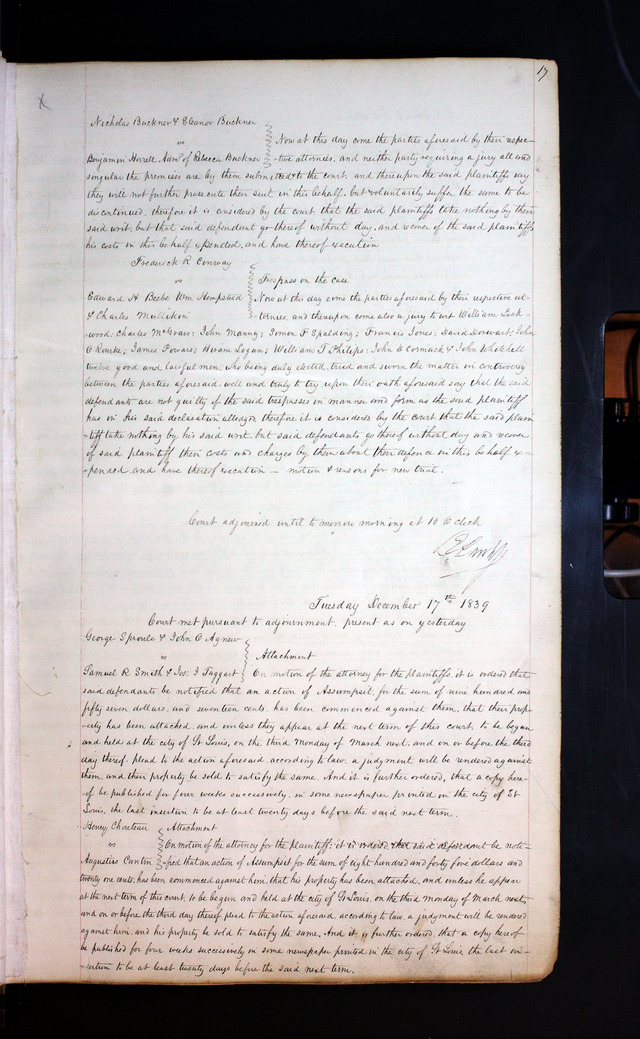 17
Nicholas Buckner & Eleanor Buckner
vs
Now at this day come the parties aforesaid by their respec-
Benjamin Horrell Admr of Rebecca Buckner
-tive attornies, and neither party requiring a jury all and
singular the premises are by them submitted to the court and thereupon the said plaintiffs say
they will not further prosecute their suit in this behalf, but voluntarily suffer the same to be
discontinued, therefore it is considered by the court that the said plaintiffs take nothing by their
said writ, but that said defendant go thereof without day, and recover of the said plaintiffs
his costs in this behalf expended, and have thereof execution
Frederick R Conway
vs
Trespass on the case
Edward H Beebe Wm Hempstead
Now at this day come the parties aforesaid by their respective at-
& Charles Mullikin
-tornies, and thereupon come also a jury to wit William Lock-
wood; Charles McGraw; John Manny; Simon F Spalding; Francis Jones; David Dorwart; John
O Rourke; James Fowars; Hiram Logan; William T Philips; John D Cormack & John Whitehill
twelve good and lawful men, who being duly elected, tried and sworn the matter in controversy
between the parties aforesaid, well and truly to try, upon their oath aforesaid say that the said
defendants are not guilty of the said trespasses in manner and form as the said plaintiff
has in his said declaration alledged, therefore it is considered by the court that the said plain-
-tiff take nothing by his said writ, but said defendants go thereof without day and recover
of said plaintiff their costs and charges by them about their defence in this behalf ex-
-pended, and have thereof execution — motion & reasons for new trial.
Court adjourned until to morrow morning at 10 O clock
Tuesday December 17th 1839
Court met pursuant to adjournment, present as on yesterday
George Sproule & John C Agnew
vs
Attachment
Samuel R Smith & Jos: I Taggart
On motion of the attorney for the plaintiffs, it is ordered that
said defendants be notified that an action of Assumpsit for the sum of nine hundred and
fifty seven dollars, and seventeen cents, has been commenced against them, that their prop-
-erty has been attached, and unless they appear at the next term of this court, to be began
and held at the city of St Louis, on the third monday of March next, and on or before the third
day thereof, plead to the action aforesaid, according to law, a judgment will be rendered against
them, and their property be sold to satisfy the same. And it is further ordered, that a copy here-
-of be published for four weeks successively, in some newspaper printed in the city of St
Louis, the last insertion to be at least twenty days before the said next term.
Henry Chouteau
Attachment
vs
On motion of the attorney for the plaintiff; it is ordered that said defendant be noti-
Augustus Canton
-fied that an action of Assumpsit for the sum of eight hundred and forty five dollars and
twenty one cents, has been commenced against him, that his property has been attached, and unless he appear
at the next term of this court, to be begun and held at the city of St Louis, on the third monday of March next,
and on or before the third day thereof plead to the action aforesaid, according to law, a judgment will be rendered
against him, and his property be sold to satisfy the same. And it is further ordered, that a copy hereof
be published for four weeks successively in some newspaper printed in the city of St Louis, the last in-
-sertion to be at least twenty days before the said next term.